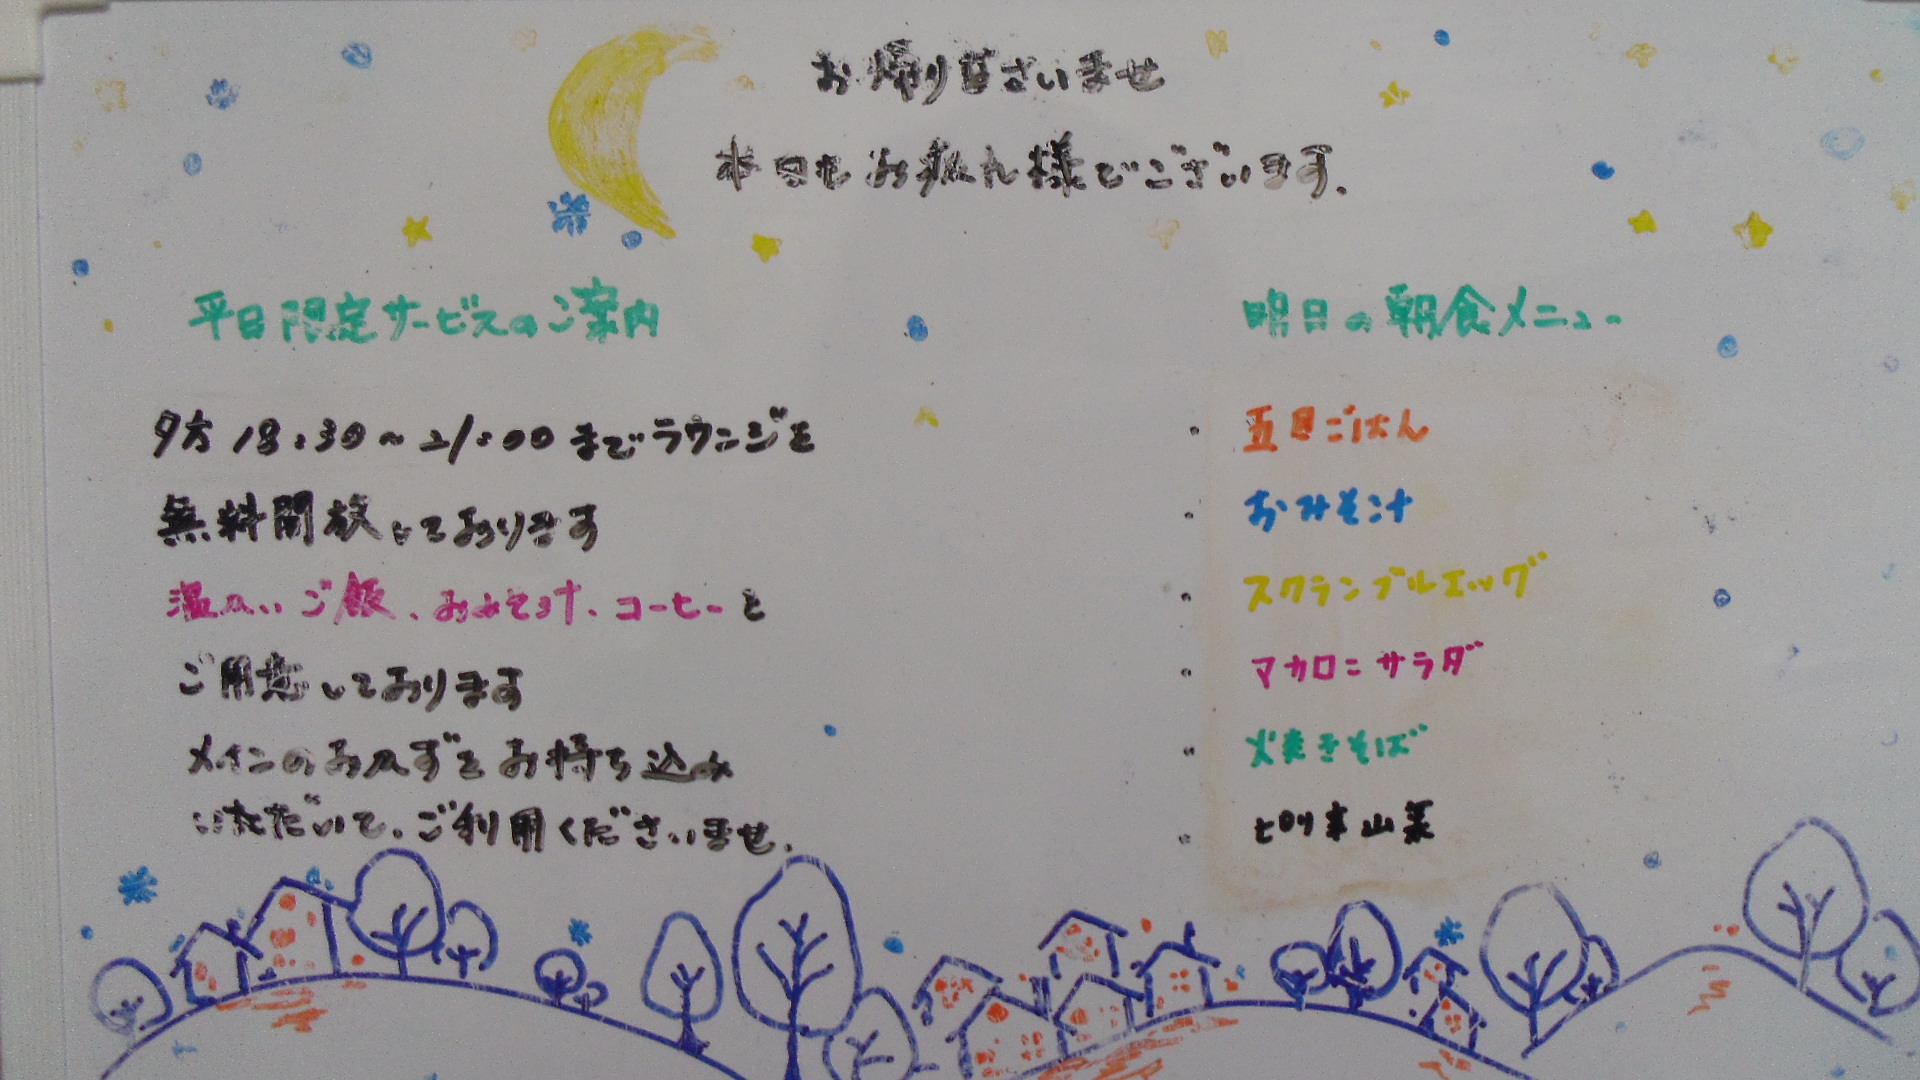 お帰りなさいませ
本日もお疲れ様でございます.
平日限定サービスのご案内
夕方 18:30～21:00までラウンジを
無料開放しております
温かいご飯、おみそ汁、コーヒーと
ご用意しております
メインのおかずをお持ち込み
いただいて、ご利用くださいませ.
明日の朝食メニュー
・五目ごはん
・おみそ汁
・スクランブルエッグ
・マカロニサラダ
・焼きそば
・ピリ辛山菜